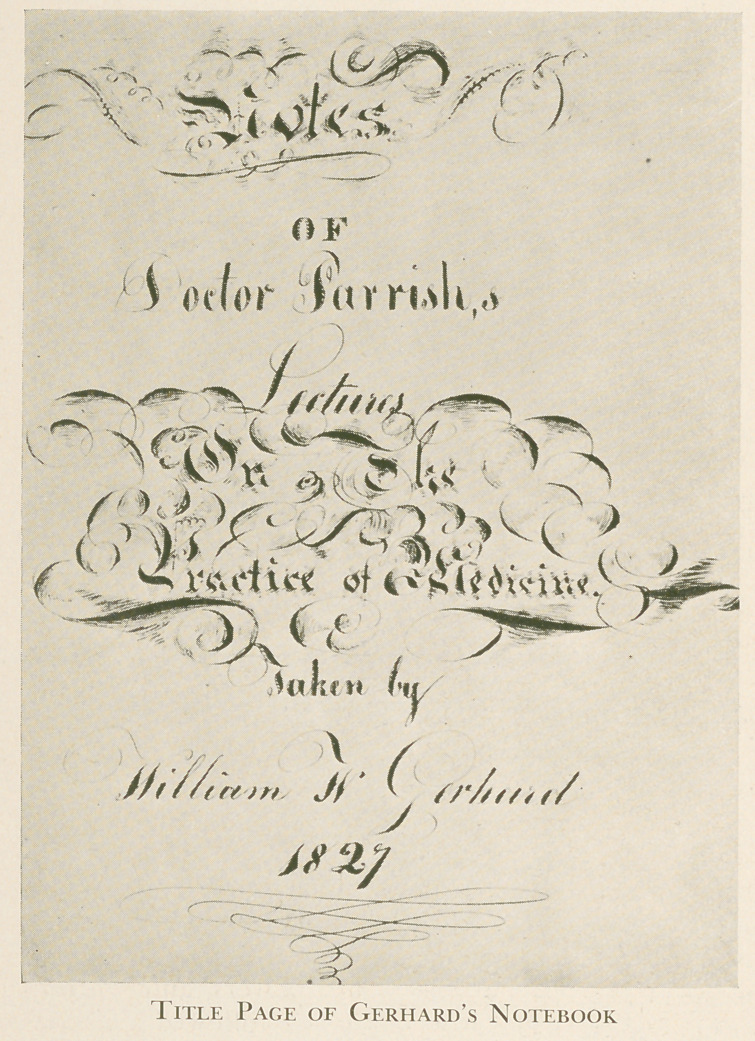 Notes
OF
Doctor Parrish,s
Lectures
On The
Practice of Medicine.
Taken by
William W Gerhard
1827
TITLE PAGE OF GERHARD'S NOTEBOOK